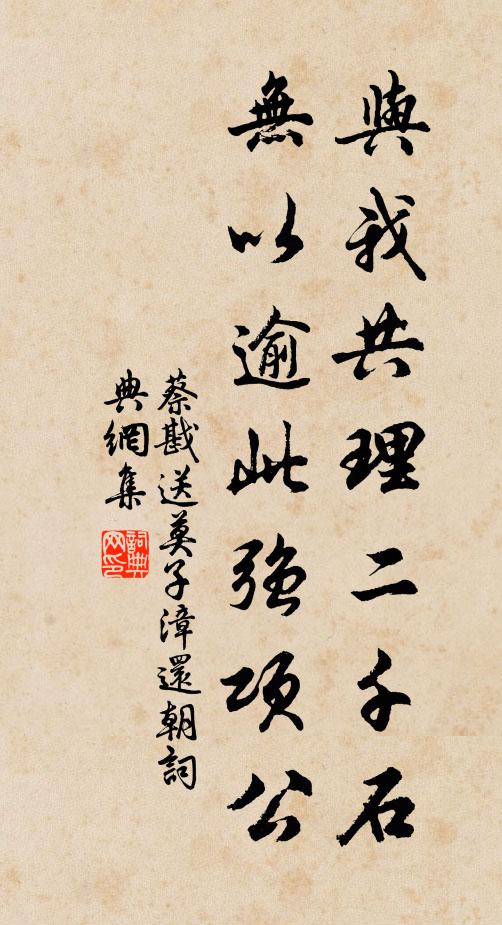 與我共理二千石
無以逾此強項公
蔡戡送莫子漳還朝詞
典網集
詞典
网印